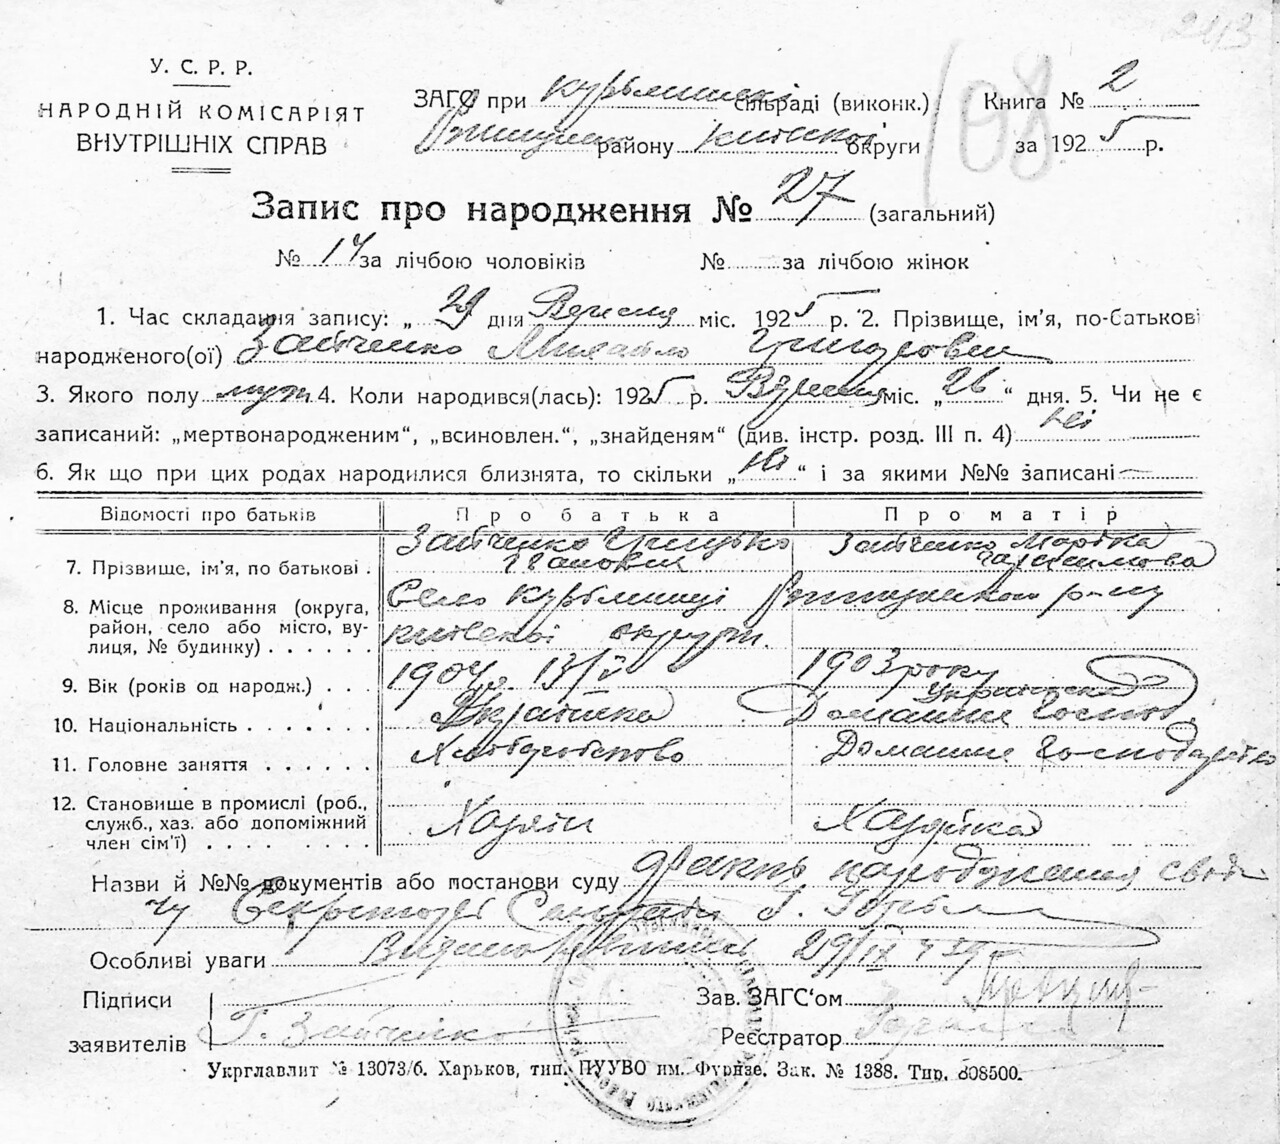 2213
У. С. Р. Р.
НАРОДНІЙ КОМІСАРІЯТ
ВНУТРІШНІХ СПРАВ
108
ЗАГС при сільраді (виконк.) Книга № 2
району округи за 1925 р.
Запис про народження № 27 (загальний)
№ 14 за лічбою чоловіків № за лічбою жінок
1. Час складання запису: „ 29 дня Вересня міс. 1925 р. 2. Прізвище, ім'я, по-батькові
народженого(ої) Зайченко Михайло Григорович
3. Якого полу муж 4. Коли народився(лась): 1925 р. Вересня міс. „26“ дня. 5. Чи не є
записаний: „мертвонародженим“, „всиновлен.“, „знайденям“ (див. інстр. розд. III п. 4) ні
6. Як що при цих родах народилися близнята, то скільки „ні“ і за якими №№ записані —
Відомості про батьків Про батька Про матір
7. Прізвище, ім'я, по батькові . Зайченко Грицько Зайченко
8. Місце проживання (округа, район, село або місто, вулиця, № будинку) . . . . . . Село
округи.
9. Вік (років од народж.) . . . 1904 1903 року
Українка
10. Національність . . . . . . . Українка Домашнє господ.
11. Головне заняття . . . . . . Хліборобство Домашнє господарство
12. Становище в промислі (роб., служб., хаз. або допоміжний член сім'ї) . . . . . . . Хазяїн Хазяйка
Назви й №№ документів або постанови суду факт народження свід-
чу Секретар Сільради
Особливі уваги Видано 29/IX
Підписи
заявителів Г. Зайченко
Зав. ЗАГС'ом
Реєстратор
Укрглавлит № 13073/б. Харьков, тип. ПУУВО им. Фрунзе. Зак. № 1388. Тир. 808500.